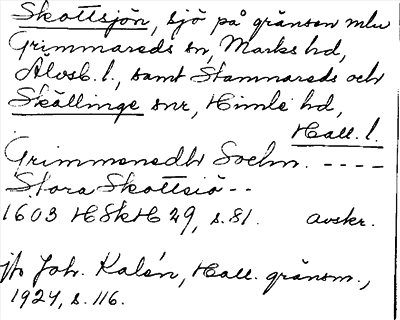 Skottsjön, sjö på gränsen mlu
Grimmareds sn, Marks hd,
Älvsb. l., samt Stammareds och
Skällinge snr, Himle hd,
Hall. l.
Grimmeredh Sochn. ----
Stora Skottsiö --
1603 HSkH 29, s. 81. avskr.
jfr Joh. Kalén, Hall. gränsm.,
1924, s. 116.